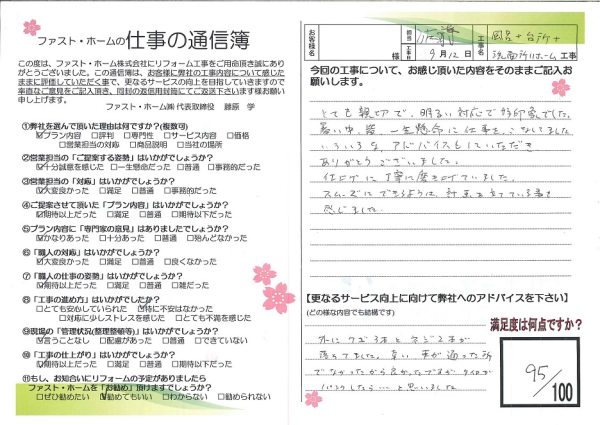 ファスト・ホームの 仕事の通信簿
この度は、ファスト・ホーム株式会社にリフォーム工事をご用命頂き誠にあり
がとうございました。この通信簿は、お客様に弊社の工事内容について感じた
ままに評価していただく事で、更なるサービスの向上を目指していきますので
率直なご意見をご記入頂き、同封の返信用封筒にてご返送下さいます様お願い
申し上げます。
ファスト・ホーム㈱ 代表取締役 藤原 学
①弊社を選んで頂いた理由は何ですか?(複数可)
☑プラン内容 □評判 □専門性 □サービス内容 □価格
□営業担当の対応 □商品説明 □当社の場所
②営業担当の「ご提案する姿勢」はいかがでしょうか?
☑十分誠意を感じた □一生懸命だった □普通 □事務的だった
③営業担当の「対応」はいかがでしょうか?
☑大変良かった □満足 □普通 □事務的だった
④ご提案させて頂いた「プラン内容」はいかがでしょうか?
☑期待以上だった □満足 □普通 □期待以下だった
⑤プラン内容に「専門家の意見」はありましたでしょうか?
☑かなりあった □十分あった □普通 □殆んどなかった
⑥「職人の対応」はいかがでしょうか?
☑大変良かった □満足 □普通 □良くなかった
⑦「職人の仕事の姿勢」はいかがでしょうか?
☑期待以上だった □満足 □普通 □雑だった
⑧「工事の進め方」はいかがでしたか?
□とても安心していられた ☑特に不安はなかった
□対応に少しストレスを感じた □とても不満を感じた
⑨現場の「管理状況(整理整頓等)」はいかがでしょうか?
☑言うことなし □配慮があった □普通 □できていない
⑩「工事の仕上がり」はいかがでしょうか?
☑期待以上だった □満足 □普通 □期待以下だった
⑪もし、お知合いにリフォームの予定がありましたら
ファスト・ホームを「お勧め」頂けますでしょうか?
□ぜひ勧めたい ☑勧めてもいい □わからない □勧められない
お客様名 様
担当
9月12日
工事名 風呂+台所+
洗面所リホーム 工事
今回の工事について、お感じ頂いた内容をそのままご記入お
願いします。
とても親切で、明るい対応で好印象でした。
暑い中、皆、一生懸命に仕事をこなしてました。
いろいろな、アドバイスもしていただき
ありがとうございました。
仕上げに丁寧に磨き上げていました。
スムーズにできるように、計画を立てている事を
感じました。
【更なるサービス向上に向けて弊社へのアドバイスを下さい】
(どの様な内容でも結構です)
外にクギ3本とネジ2本が
落ちてました。幸い、車が通った所
でなかったから良かったですが、タイヤが
パンクしたら…と思いました。
満足度は何点ですか?
95
/100